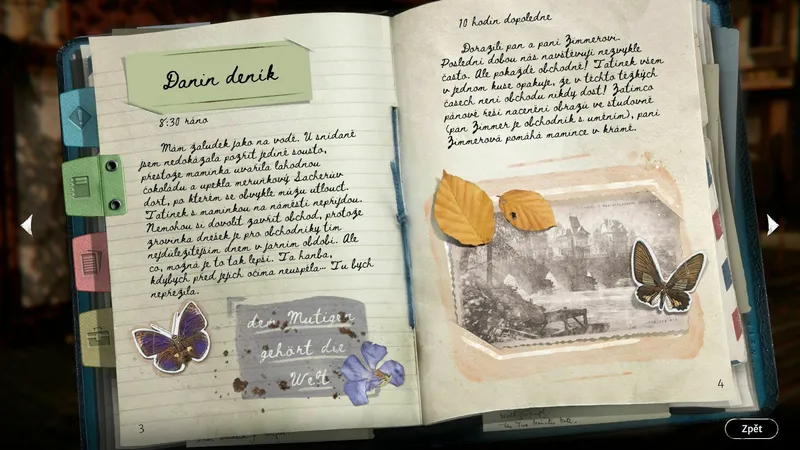 Danin deník
8:30 ráno
Mám žaludek jako na vodě. U snídaně
jsem nedokázala pozřít jediné sousto,
přestože maminka uvařila lahodnou
čokoládu a upekla meruňkový Sacherův
dort, po kterém se obvykle můžu utlouct.
Tatínek s maminkou na náměstí nepřijdou.
Nemohou si dovolit zavřít obchod, protože
zrovinka dnešek je pro obchodníky tím
nejdůležitějším dnem v jarním období. Ale
co, možná je to tak lepší. Ta hanba,
kdybych před jejich očima neuspěla... Tu bych
nepřežila.
dem Mutigen
gehört die
Welt
3
10 hodin dopoledne
Dorazili pan a paní Zimmerovi.
Poslední dobou nás navštěvují nezvykle
často. Ale pokaždé obchodně! Tatínek všem
v jednom kuse opakuje, že v těchto těžkých
časech není obchodu nikdy dost! Zatímco
pánové řeší nacenění obrazů ve studovně
(pan Zimmer je obchodník s uměním), paní
Zimmerová pomáhá mamince v krámě.
4
Zpět